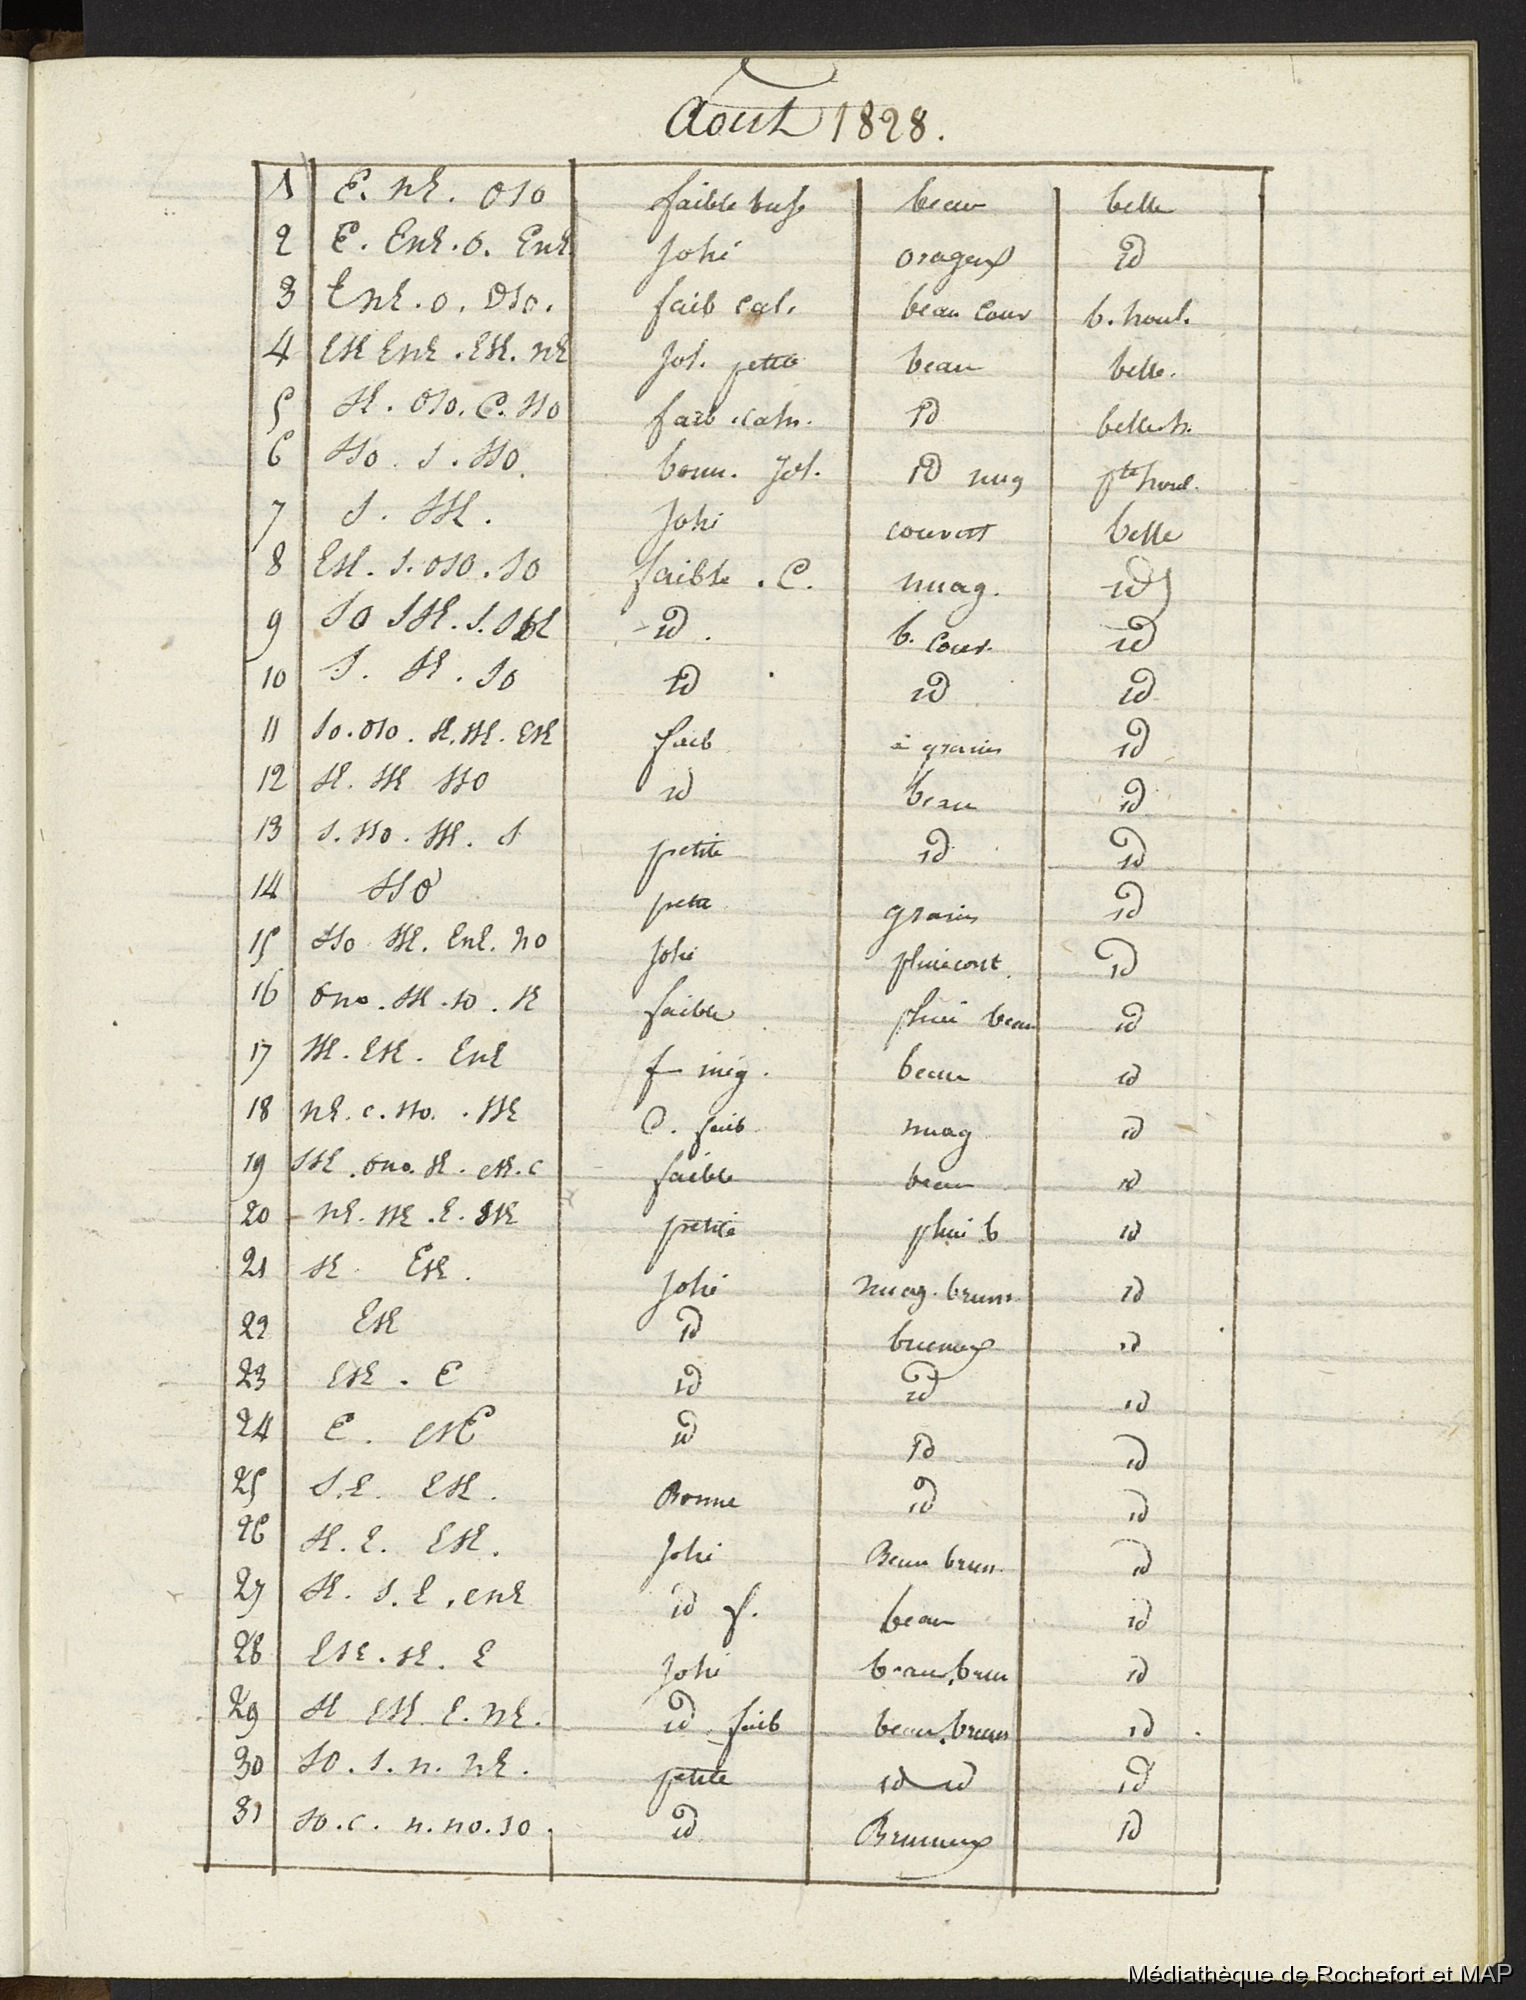 Aout 1828.
1 E. NE. OSO faible beau belle
2 E. ENE. O. ENE Joli orageux id
3 ENE. O. OSO. faib cal. beau Couv b. houl.
4 ESE ENE. ESE. NE Jol. petite beau belle.
5 SE. OSO. C. SSO faib. calm. id belle h.
6 SSO. S. SSO. bonn. Jol. id nuag pte houl.
7 S. SSE. Joli couvert belle
8 ESE. S. OSO. SO faible. C. nuag. id
9 SO SSE. S. id. b. Couv. id
10 S. SE. SO id id id
11 SO. OSO. SE. SSE. ESE faib à grains id
12 SE. SSE SSO id beau id
13 S. SSO. SSE. S petite id id
14 SSO petit grains id
15 SSO SSE. ENE. NO Joli pluie cont. id
16 ONO. SSE. SO. SE faible pluie beau id
17 SSE. ESE. ENE f inég. beau id
18 NE. C. SSO. SSE C. faib nuag id
19 SSE. ONO. SE. ESE. C faible beau id
20 NE. SSE. E. SSE petite pluie b id
21 SE ESE. Joli nuag. brum id
22 ESE id brumeux id
23 ESE. E id id id
24 E. ESE id id id
25 S.E. ESE. Bonne id id
26 SE. E. ESE. Joli Beau brum id
27 SE. S. E. ENE id f. beau id
28 ESE. SE. E Joli beau, brum id
29 SE ESE. E. NE. id. faib beau, brum id.
30 SO. S. N. NE. petite id id id
31 SO. C. N. NO. SO. id Brumeux id
Médiathèque de Rochefort et MAP